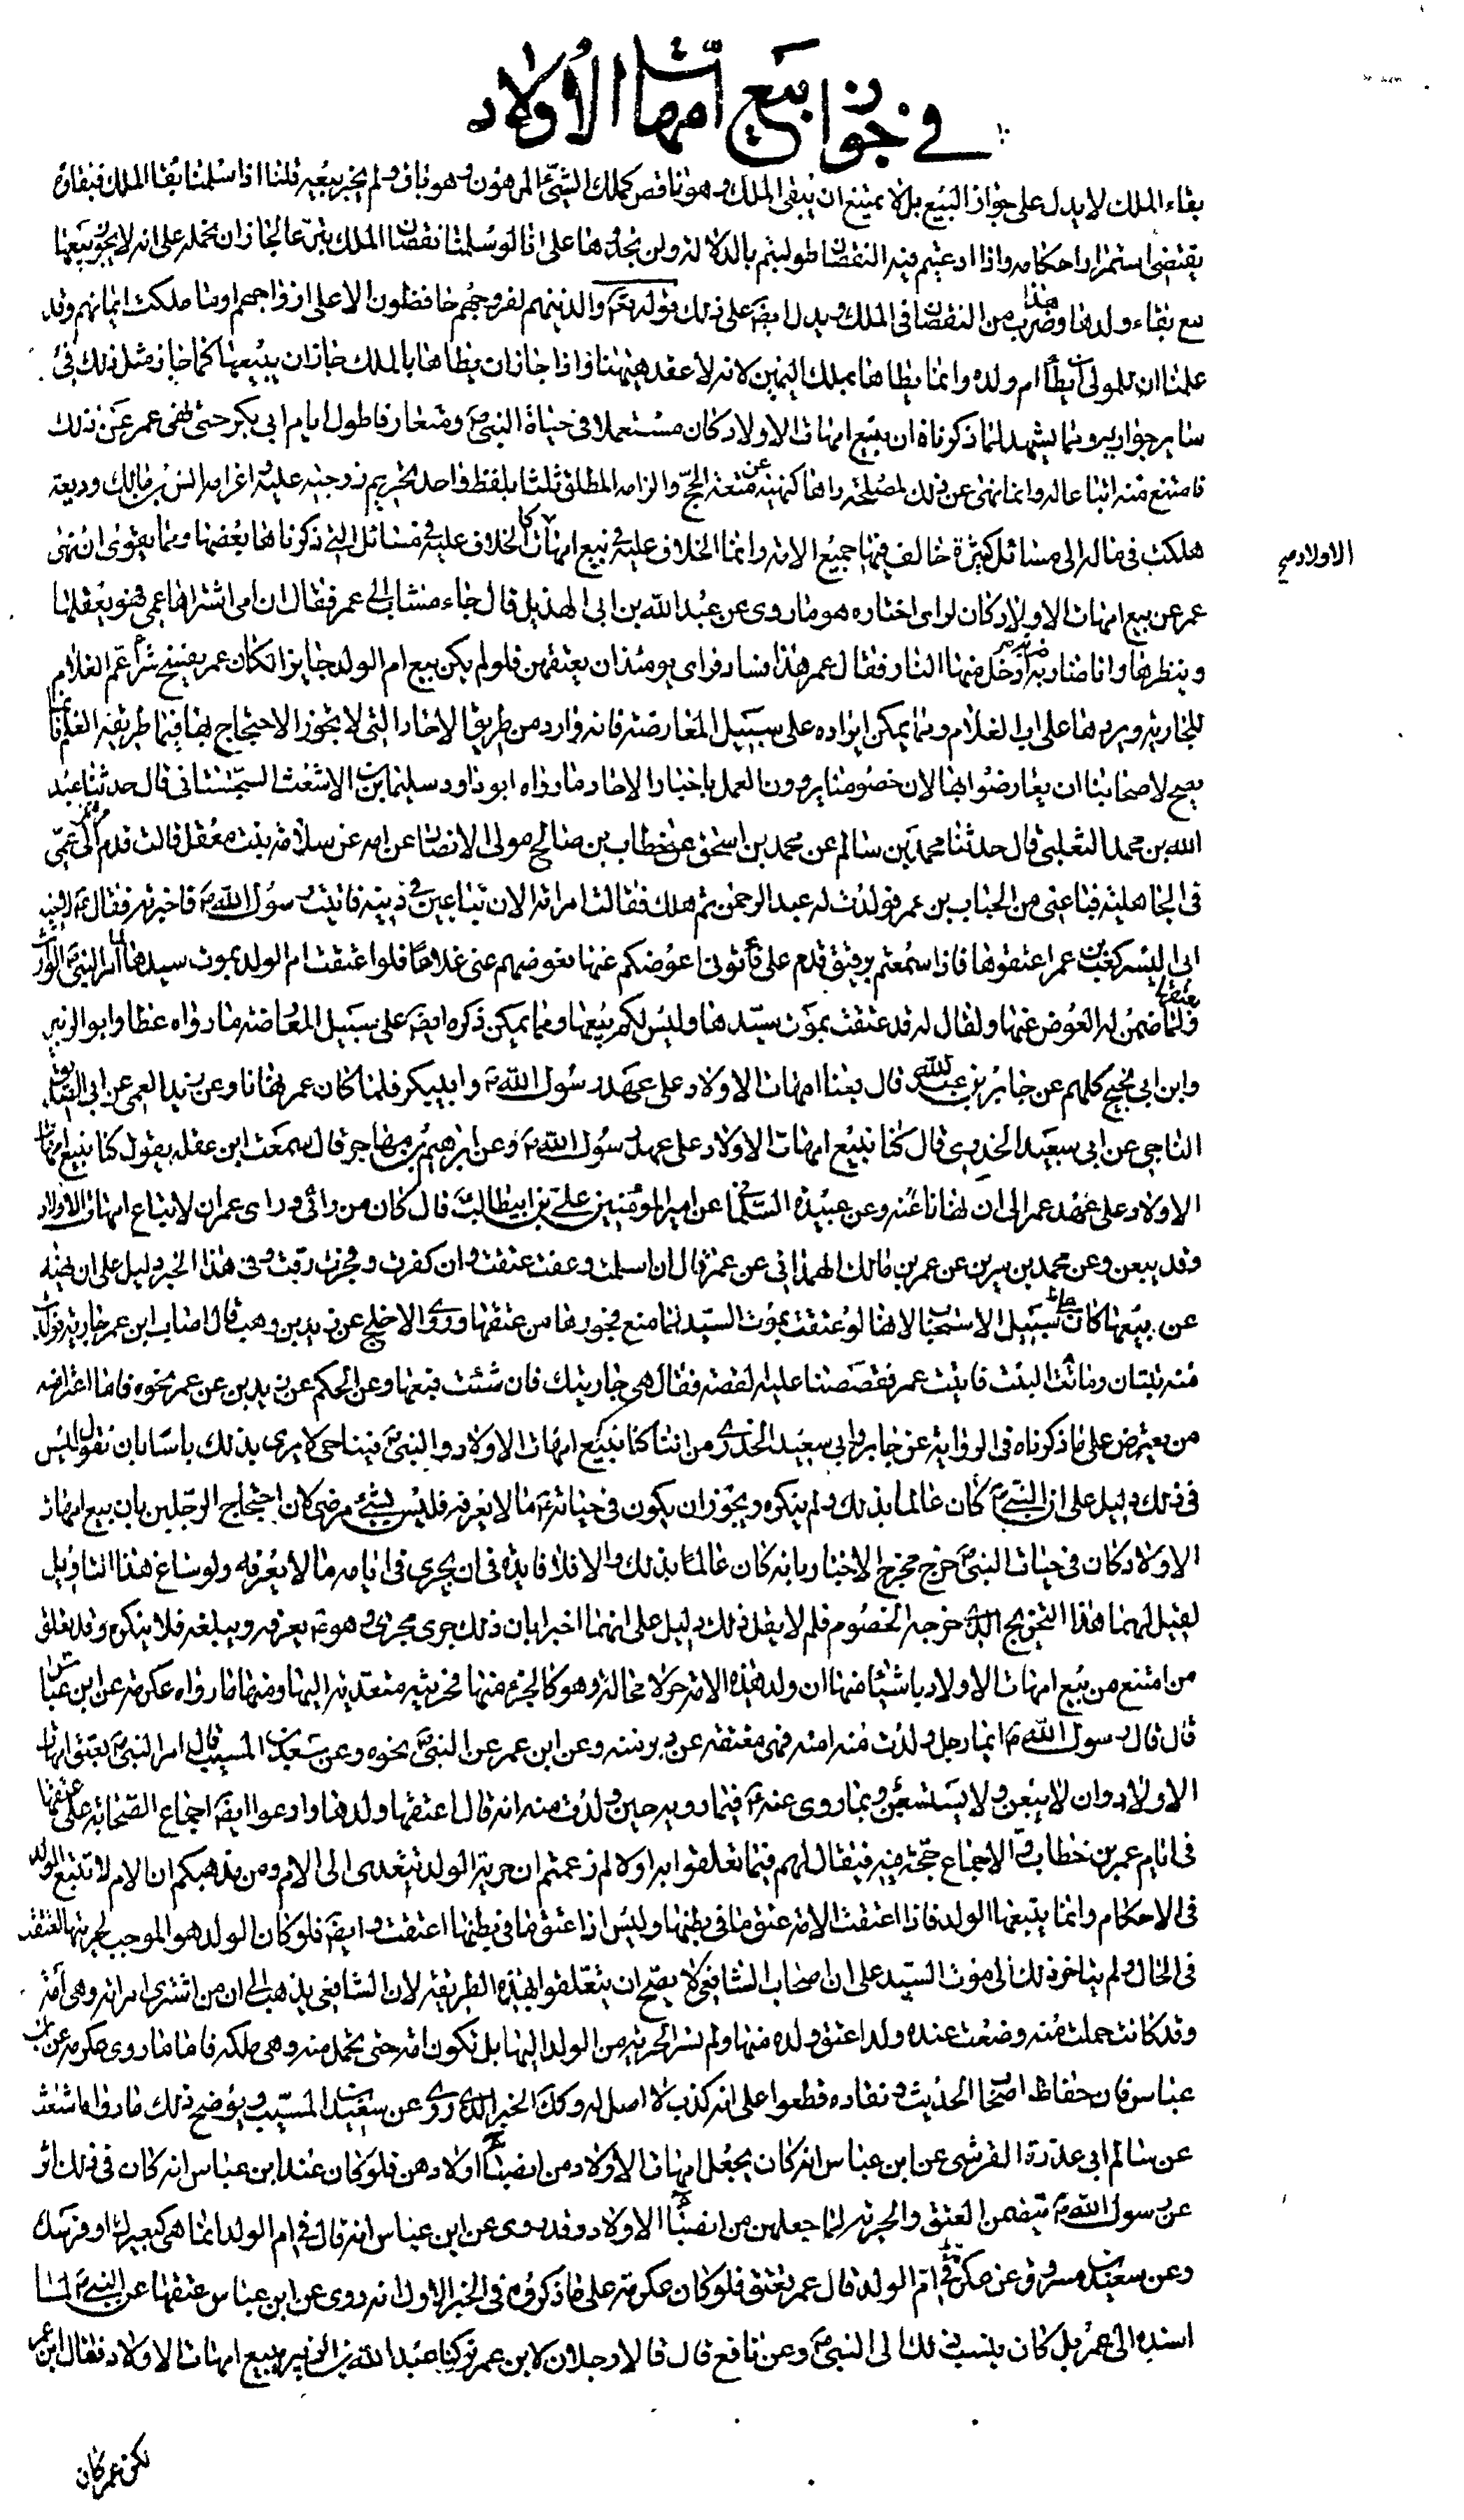 في جواز بيع امهات الاولاد
بقاء الملك لا يدل على جواز البيع بل لا يمتنع ان يبقى الملك وهو ناقص كملك الشيء المرهون وهو باق ولم يجز بيعه قلنا اذا سلمنا بقا الملك فبقاؤه
يقتضي استمرار احكامه واذا ادعيتم فيه النقصان طولبتم بالدلالة ولن تجدوها على انا لو سلمنا نقصان الملك تبرعا لجاز ان نحمله على انه لا يجوز بيعها
مع بقاء ولدها وهذا ضرب من النقصان في الملك ويدل ايضا على ذلك قوله تع والذينهم لفروجهم حافظون الا على ازواجهم او ما ملكت ايمانهم وقد
علمنا ان للمولى ان يطأ ام ولده وانما يطاها بملك اليمين لانه لا عقد هيهنا واذا جاز ان يطاها بالملك جاز ان يبيعها كما جاز مثل ذلك في
ساير جواريه ومما يشهد لما ذكرناه ان بيع امهات الاولاد كان مستعملا في حياة النبي ص ومتعارفا طول ايام ابي بكر حتى نهى عمر عن ذلك
فامتنع منه اتباعا له وانما نهى عن ذلك لمصلحة راها كنهيه عن متعة الحج والزامه المطلق ثلثا بلفظ واحد تحريم زوجته عليه اغرامه انس بن مالك وديعة
هلكت في ماله الى مسائل كثيرة خالف فيها جميع الامة وانما الخلاف عليه في بيع امهات كالخلاف عليه في مسائل التي ذكرناها بعضها ومما يقوى ان نهى
الاولاد صح
عمر عن بيع امهات الاولاد كان لراى اختاره هو ما روى عن عبد الله بن ابي الهذيل قال جاء شاب الى عمر فقال ان امى اشتراها عمى فهو يقبلها
وينظرها وانا ضاربه ضربة ادخل منها النار فقال عمر هذا فساد فراى يومئذ ان يعتقهن فلو لم يكن بيع ام الولد جايزا لكان عمر يفسخ شراء عم الغلام
للجارية ويردها على اب الغلام ومما يمكن ايراده على سبيل المعارضة فانه وارد من طريق الاحاد التي لا يجوز الاحتجاج بها فيما طريقه العلم فانما
يصح لاصحابنا ان يعارضوا بها لان خصومنا يرون العمل باخبار الاحاد ما رواه ابو داود سليمان بن الاشعث السجستاني قال حدثنا عبد
الله بن محمد الثعلبي قال حدثنا محمد بن سالم عن محمد بن اسحق عن خطاب بن صالح مولى الانصار عن امه عن سلامة بنت معقل قالت قدم بي عمى
في الجاهلية فباعني من الحباب بن عمر فولدت له عبد الرحمن ثم هلك فقالت امراته الان تباعين في دينه فاتيت رسول الله ص فاخبرته فقال ع لاخيه
ابي اليسر كعب بن عمر اعتقوها فاذا سمعتم برقيق قدم على فاتوني اعوضكم عنها فعوضهم عنى غلاما فلو اعتقت ام الولد بموت سيدها لما امر النبي ص الوارث بعتقها
ولما ضمن له العوض عنها ولقال له قد عتقت بموت سيدها وليس لكم بيعها ومما يمكن ذكره ايضا على سبيل المعارضة ما رواه عطا وابو الزبير
وابن ابي نجيح كلهم عن جابر بن عبد الله قال بعنا امهات الاولاد على عهد رسول الله ص وابي بكر فلما كان عمر نهانا وعن زيد العمى عن ابي الصديق
الناجى عن ابي سعيد الخدري قال كنا نبيع امهات الاولاد على عهد رسول الله ص وعن ابرهيم بن مهاجر قال سمعت ابن عقلة يقول كنا نبيع امهات
الاولاد على عهد عمر الى ان نهانا عنه وعن عبيدة السلماني عن امير المؤمنين علي بن ابيطالب ع قال كان من رائي وراى عمر ان لا تباع امهات الاولاد
وقد يبعن وعن محمد بن سيرين عن عمر بن مالك الهمذاني عن عمر قال ان اسلمت وعفت عتقت وان كفرت وفجرت رقت وفي هذا الخبر دليل على ان نهيه
عن بيعها كان على سبيل الاستحباب لانها لو عتقت بموت السيد لما منع فجورها من عتقها وروى الاجلح عن زيد بن وهب قال اصاب ابن عمر جارية فولدت
منه بنتان وماتت البنت فاتيت عمر فقصصنا عليه القصة فقال هي جاريتك فان شئت فبعها وعن الحكم عن زيد بن عن عمر نحوه فاما اعتراض
من يعترض على ما ذكرناه في الرواية عن جابر وابي سعيد الخدري من اننا كنا نبيع امهات الاولاد والنبي ص فينا حي لا يرى بذلك باسا بان نقول ليس
في ذلك دليل على ان النبي ص كان عالما بذلك ولم ينكره ويجوز ان يكون في حياته ع ما لا يعرفه فليس بشيء مرضي كان احتجاج الرجلين بان بيع امهات
الاولاد كان في حيات النبي ص خرج مخرج الاخبار بانه كان عالما بذلك والا فلا فايدة في ان يجري في ايامه ما لا يعرفه ولو ساغ هذا التاويل
لقيل لهما هذا التخريج الذي خرجه الخصوم فلم لا يقل ذلك دليل على انهما اخبرا بان ذلك جرى مجرى وهو ع يعرفه ويبلغه فلا ينكره وقد تعلق
من امتنع من بيع امهات الاولاد باشيا منها ان ولد هذه الامة حر لا محالة وهو كالجزء منها فحريته متعدية اليها ومنها ما رواه عكرمة عن ابن عباس
قال قال رسول الله ص ايما رجل ولدت منه امته فهي معتقة عن دبر منه وعن ابن عمر عن النبي ص نحوه وعن سعيد بن المسيب قال امر النبي ص بعتق امهات
الاولاد وان لا يبعن ولا يستسعين وبما روى عنه ع فيما روية حين ولدت منه انه قال اعتقها ولدها وادعوا ايضا اجماع الصحابة على عتقها
في ايام عمر بن خطاب والاجماع حجة فيه فيقال لهم فيما تعلقوا به اولا لم زعمتم ان حرية الولد تتعدى الى الام ومن مذهبكم ان الام لا تتبع الولد
في الاحكام وانما يتبعها الولد فاذا اعتقت الامة عتق ما في بطنها وليس اذا عتق ما في بطنها اعتقت وايضا فلو كان الولد هو الموجب لحريتها لعتقت
في الحال ولم يتاخر ذلك الى موت السيد على ان اصحاب الشافعي لا يصح ان يتعلقوا بهذه الطريقة لان الشافعي يذهب الى ان من اشترى امراته وهي امة
وقد كانت حملت منه وضعت عنده ولدا عتق ولده منها ولم تسر الحرية من الولد اليها بل تكون امة حتى تحمل منه وهي ملكه فاما ما روى عكرمة عن ابن
عباس فان حفاظ اصحاب الحديث ونقاده قطعوا على انه كذب لا اصل له وكذا الخبر الذي روى عن سعيد بن المسيب ويوضح ذلك ما رواه اشعث
عن سالم ابي عذرة القرشي عن ابن عباس انه كان يجعل امهات الاولاد من انصباء اولادهن فلو كان عند ابن عباس انه كان في ذلك اثر
عن رسول الله ص يتضمن العتق والحرية لما جعلهن من انصباء الاولاد وقد روى عن ابن عباس انه قال في ام الولد انما هي كبعيرك او فرسك
وعن سعيد بن مسروق عن عكرمة في ام الولد قال عمر تعتق فلو كان عكرمة على ما ذكروه في الخبر الاول انه روى عن ابن عباس عتقها عن النبي ص لما
اسنده الى عمر بل كان ينسب ذلك الى النبي ص وعن نافع قال قالا رجلان لابن عمر تركنا عبد الله بن الزبير يبيع امهات الاولاد فقال ابن عمر
لكن عمر كان